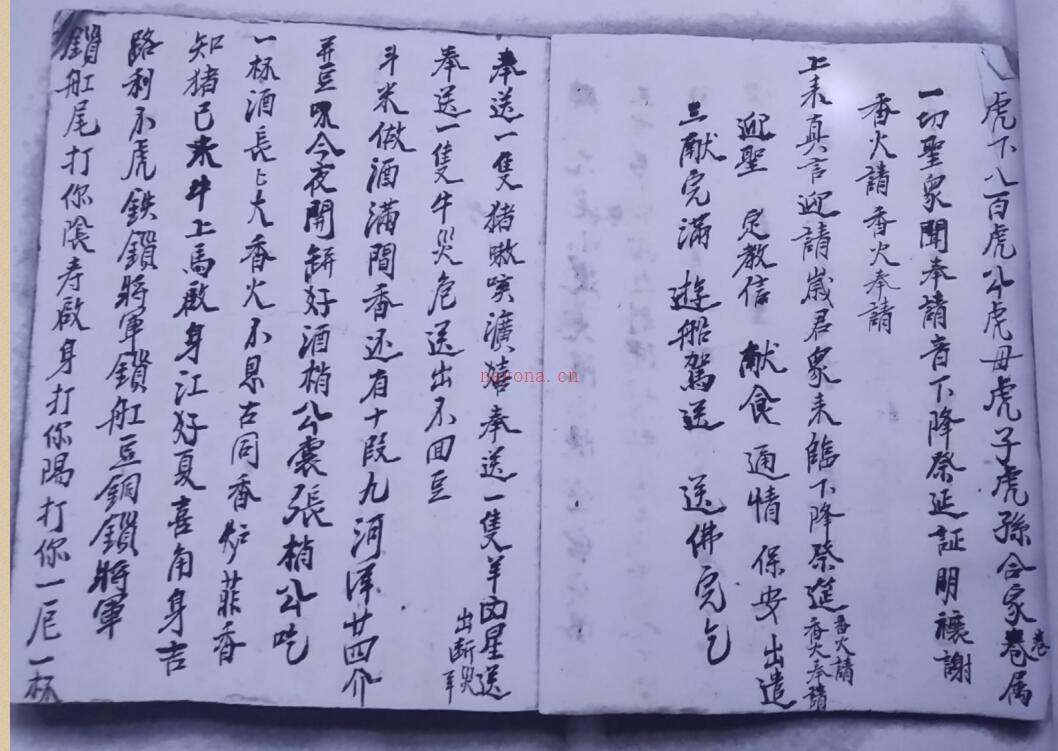 虎下八百虎公虎母虎子虎孫合家卷属
卷
一切聖眾聞奉請音下降祭延証明禳謝
香火請香火奉請
上来真言迎請歲君眾来臨下降祭筵
香火請
香火奉請
迎聖 定教信 献食 通情 保安 出遣
三献完滿 遊船駕送 送佛完乞
奉送一隻猪 奉送一隻羊 星送
出断
奉送一隻牛災危送出不回豆
斗米做酒滿間香还有十段九河澤廿四介
豆 今夜開缾好酒梢公囊張梢公吃
一杯酒長〻大香火不思古同香炉菲香
知猪已未牛上馬啟身江好夏喜角身吉
路利不虎鉄鎖將軍鎖舡豆銅鎖將軍
鎖舡尾打你陰寿啟身打你陽打你一 一杯
nayona.cn